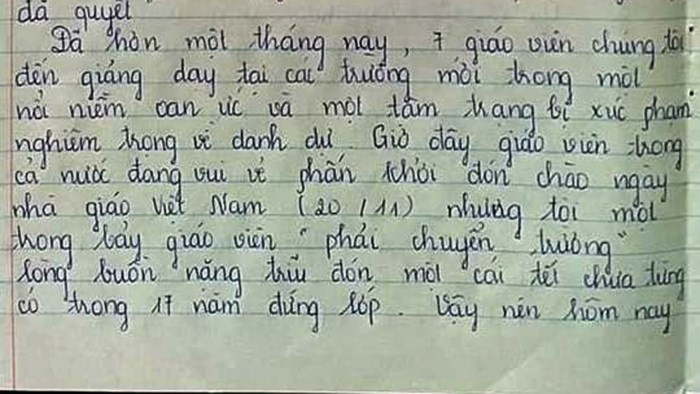 đã quyết
Đã hơn một tháng nay, 7 giáo viên chúng tôi
đến giảng dạy tại các trường mới trong một
nỗi niềm oan ức và một tâm trạng bị xúc phạm
nghiêm trọng về danh dự. Giờ đây giáo viên trong
cả nước đang vui vẻ phấn khởi đón chào ngày
nhà giáo Việt Nam (20/11) nhưng tôi một
trong bảy giáo viên "phải chuyển trường"
lòng buồn nặng trĩu đón một cái tết chưa từng
có trong 17 năm đứng lớp. Vậy nên hôm nay